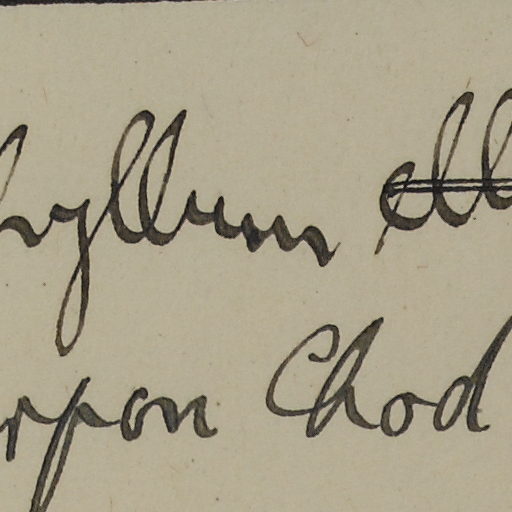 hyllum ell
rpon Chod